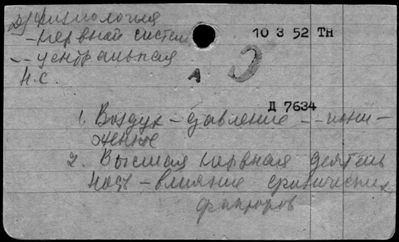 Физиология
- нервной систем
10 3 52 Тн
-- центральная
Н.С.
А
Д 7634
1. Воздух - давление -- пони-
жение
2. Высшая нервная деятель
ность - влияние физических
факторов